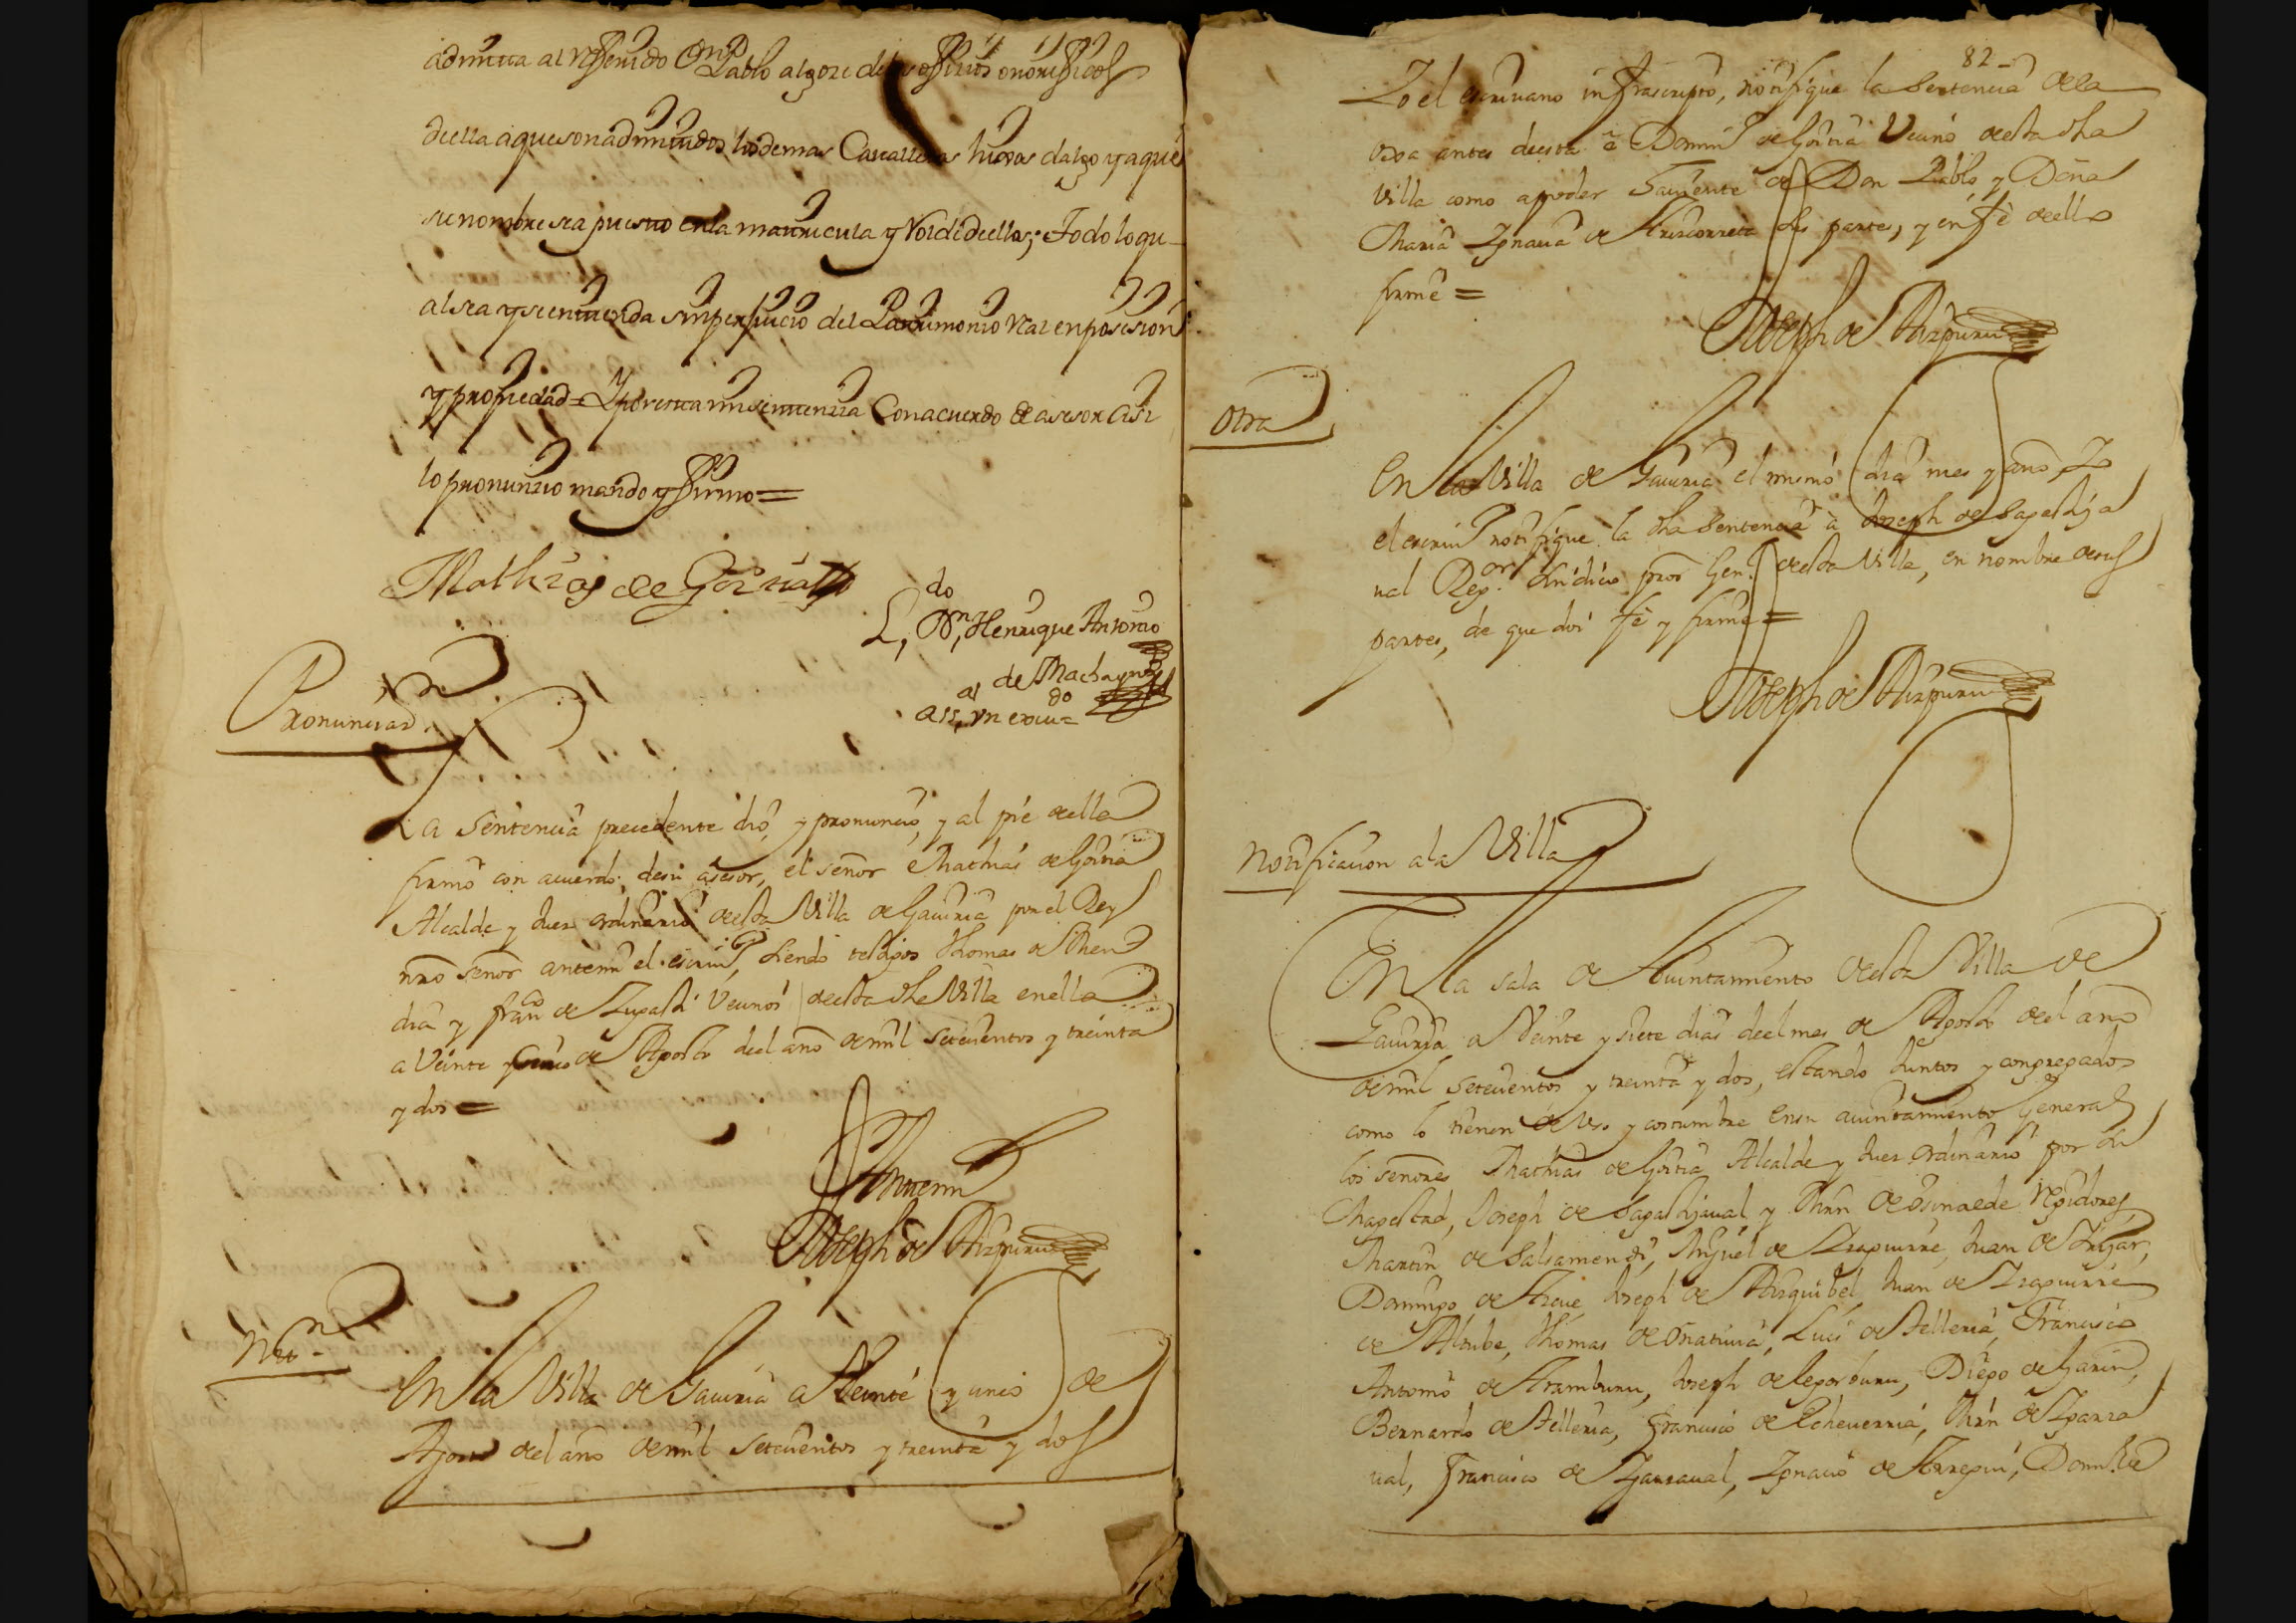 admitta al refferido Dn Pablo al goze de los offizios onorifficos
de ella a que son admitidos los demas Cavalleros hijos dalgo y a que
su nombre sea puesto en la matricula y Rolde de ellos; Todo lo qu
al sea y se entienda sin perjuicio del Patrimonio Real en posesion
y propiedad = Y por esta mi sentenzia Con acuerdo de asesor asi
lo pronunzio mando y firmo =
Mathias de Goitia
L,do Dn, Henrique Antonio
de Machayn
Pronunciaz.n
La Sentencia precedente dió, y pronunció, y al pie de ella
firmó con acuerdo, de su asesor, el señor Mathias de Goitia
Alcalde y Juez ordinario de esta Villa de Gaviria por el Rey
nro señor ante mi el escriu.no, siendo testigos Thomas de
dia y fran.co de Vecinos de esta dha Villa en ella
a Veinte y cinco de Agosto de el año de mil setecientos y treinta
y dos =
Ante mi
Joseph de Aizpuru
Not.n
En la Villa de Gaviria a Veinte y cinco de
Agosto del año de mil setecientos y treinta y dos
82
Yo el escriuano infrascripto, notifiqué la Sentencia de la
oja antes de esta a Domin.o de Goitia Vecino de esta dha
Villa como apoder haviente de Don Pablo y Doña
Maria Ignacia de Ariscorreta sus partes, y en fé de ello
firmé =
Joseph de Aizpuru
Otra
En la Villa de Gaviria el mismo dia mes y año, Yo
el escriu.no notifiqué la dha Sentencia a Joseph de Sagastiza
ual Reg.or Sindico pror Gen.l de esta Villa, en nombre de sus
partes, de que doi fé y firmé =
Joseph de Aizpuru
Notificacion a la Villa
En la sala de Aiuntamiento de esta Villa de
Gaviria a Veinte y siete dias de el mes de Agosto de el año
de mil setecientos y treinta y dos, estando Juntos y congregados
como lo tienen de Vso y costumbre en su aiuntamiento General
los señores Mathias de Goitia Alcalde y Juez ordinario por su
Magestad, Joseph de Sagastizaual y Mrn de Osinalde Regidores
Martin de Salsamendi, Miguel de Yzaguirre, Juan de
Domingo de Joseph de Aizquibel Juan de Yzaguirre
de Altube, Thomas de Oñativia, Luis de Telleria, Francisco
Antonio de Aramburu, Joseph de Legorburu, Diego de Garin,
Bernardo de Telleria, Francisco de Echeuerria, Mrn de Ygarza
ual, Francisco de Ygarzaual, Ygnacio de Arregui, Domin.o de